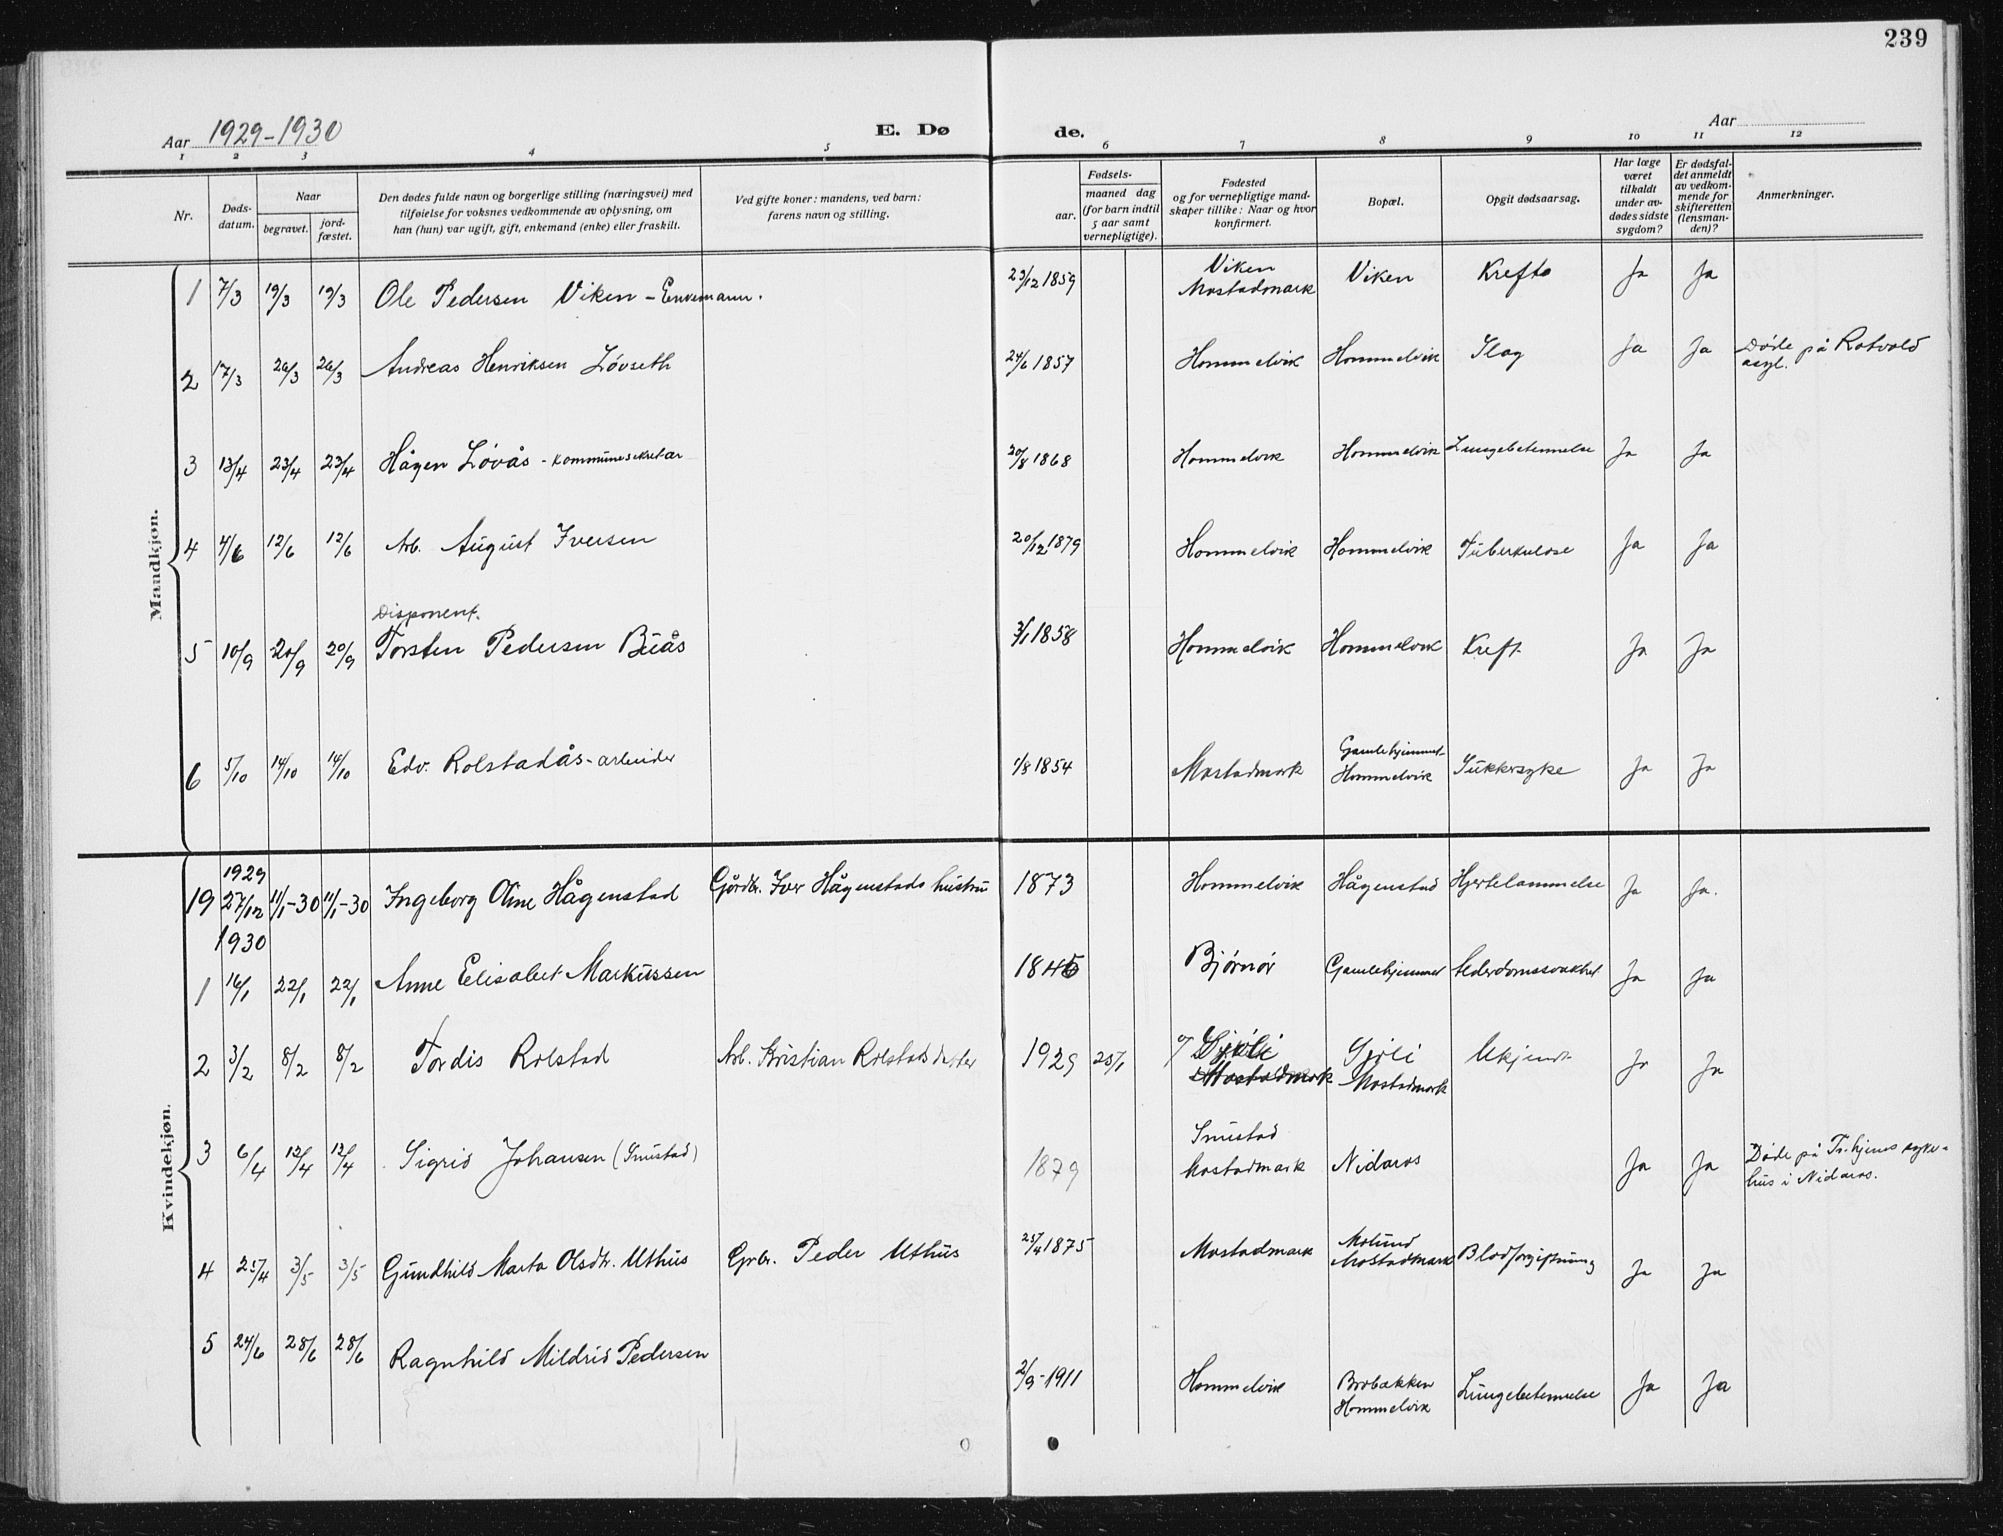 239
Aar 1929-1930
E. Dø
de.
Aar
1 2 3 4 5 6 7 8 9 10 11 12
Nr.
Døds-
datum.
Naar
begravet.
jord-
fæstet.
Den dødes fulde navn og borgerlige stilling (næringsvei) med
tilføielse for voksnes vedkommende av oplysning, om
han (hun) var ugift, gift, enkemand (enke) eller fraskilt.
Ved gifte koner: mandens, ved barn:
farens navn og stilling.
Fødsels-
aar.
maaned dag
(for barn indtil
5 aar samt
vernepligtige).
Fødested
og for vernepligtige mand-
skaper tillike: Naar og hvor
konfirmert.
Bopæl.
Opgit dødsaarsag.
Har læge
været
tilkaldt
under av-
dødes sidste
sygdom?
Er dødsfal-
det anmeldt
av vedkom-
mende for
skifteretten
(lensman-
den)?
Anmerkninger.
Mandkjøn.
1 7/3 19/3 19/3 Ole Pedersen Viken - Enkemann. 23/12 1859 Viken
Mostadmark Viken Kreft Ja Ja
2 17/3 26/3 26/3 Andreas Henriksen Lövseth 24/6 1857 Hommelvik Hommelvik Slag Ja Ja Døde på Rotvold
asyl.
3 13/4 23/4 23/4 Hågen Lövås - kommunesekretær 20/8 1868 Hommelvik Hommelvik Lungebetennelse Ja Ja
4 4/6 12/6 12/6 Arb. August Iversen 20/12 1879 Hommelvik Hommelvik Tuberkulose Ja Ja
Disponent.
5 10/9 20/9 20/9 Torsten Pedersen Buås 3/1 1858 Hommelvik Hommelvik Kreft Ja Ja
6 5/10 14/10 14/10 Edv. Rolstadås - arbeider 1/8 1854 Mostadmark Gamlehjemmet
Hommelvik Sukkersyke Ja Ja
Kvindekjøn.
1929
19 27/12 11/1-30 11/1-30 Ingeborg Oline Hågenstad Gårdbr. Iver Hågenstads hustru 1873 Hommelvik Hågenstad Hjertelammelse Ja Ja.
1930
1 16/1 22/1 22/1 Anne Elisabet Markussen 1845 Bjørnør Gamlehjemmet Alderdomssvakhet Ja Ja
2 3/2 8/2 8/2 Tordis Rolstad Arb. Kristian Rolstads datter 1929 25/1 Gjøli
Mostadmark Gjøli
Mostadmark Ukjendt Ja Ja
3 6/4 12/4 12/4 Sigrid Johansen (Snustad) 1879 Snustad
Mostadmark Nidaros Ja Ja Døde på Tr.hjems syke-
hus i Nidaros.
4 25/4 3/5 3/5 Gundhild Marta Olsdtr. Uthus Grbr. Peder Uthus 25/4 1875 Mostadmark Molund
Mostadmark Blodforgiftning Ja Ja
5 24/6 28/6 28/6 Ragnhild Mildrid Pedersen 2/9-1911 Hommelvik Brobækken
Hommelvik Lungebetennelse Ja Ja